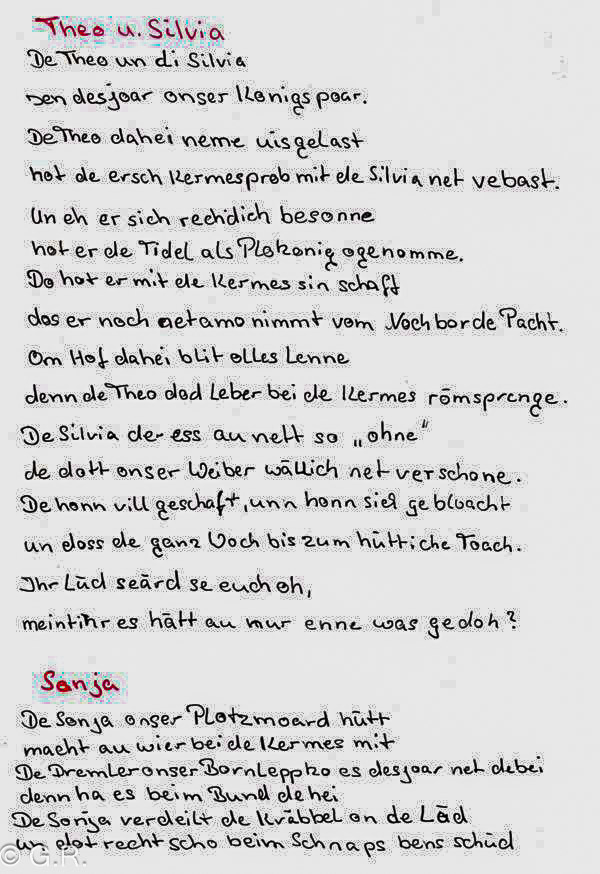 Theo u. Silvia
De Theo un di Silvia
sen desjoar onser Konigspoar.
De Theo dahei neme uisgelast
hot de ersch Kermesprob mit de Silvia net vebast.
Un eh er sich rechdich besonne
hot er de Tidel als Plokonig ogenomme.
Do hot er mit de Kermes sin schaft
dos er noch nimmt vom Nochbor de Pacht.
Om Hof dahei blit olles Lenne
denn de Theo dod Leber bei de Kermes römsprenge.
De Silvia de ess au nett so "ohne"
de dott onser Weiber wällich net verschone.
De honn vill geschaft, unn honn sich gebloacht
un doss de ganz Woch bis zum hüttiche Toach.
Ihr Lüd seärd se euch oh,
meint ihr es hätt au nur enne was gedoh?
Sonja
De Sonja onser Plotzmoard hütt
macht au wier bei de Kermes mit
De Dremler onser Bornleppko es desjoar net debei
denn ha es beim Bund de hei
De Sonja verdeilt de Kräbbel on de Läd
un dot recht scho beim Schnaps bens schüd
© G.R.